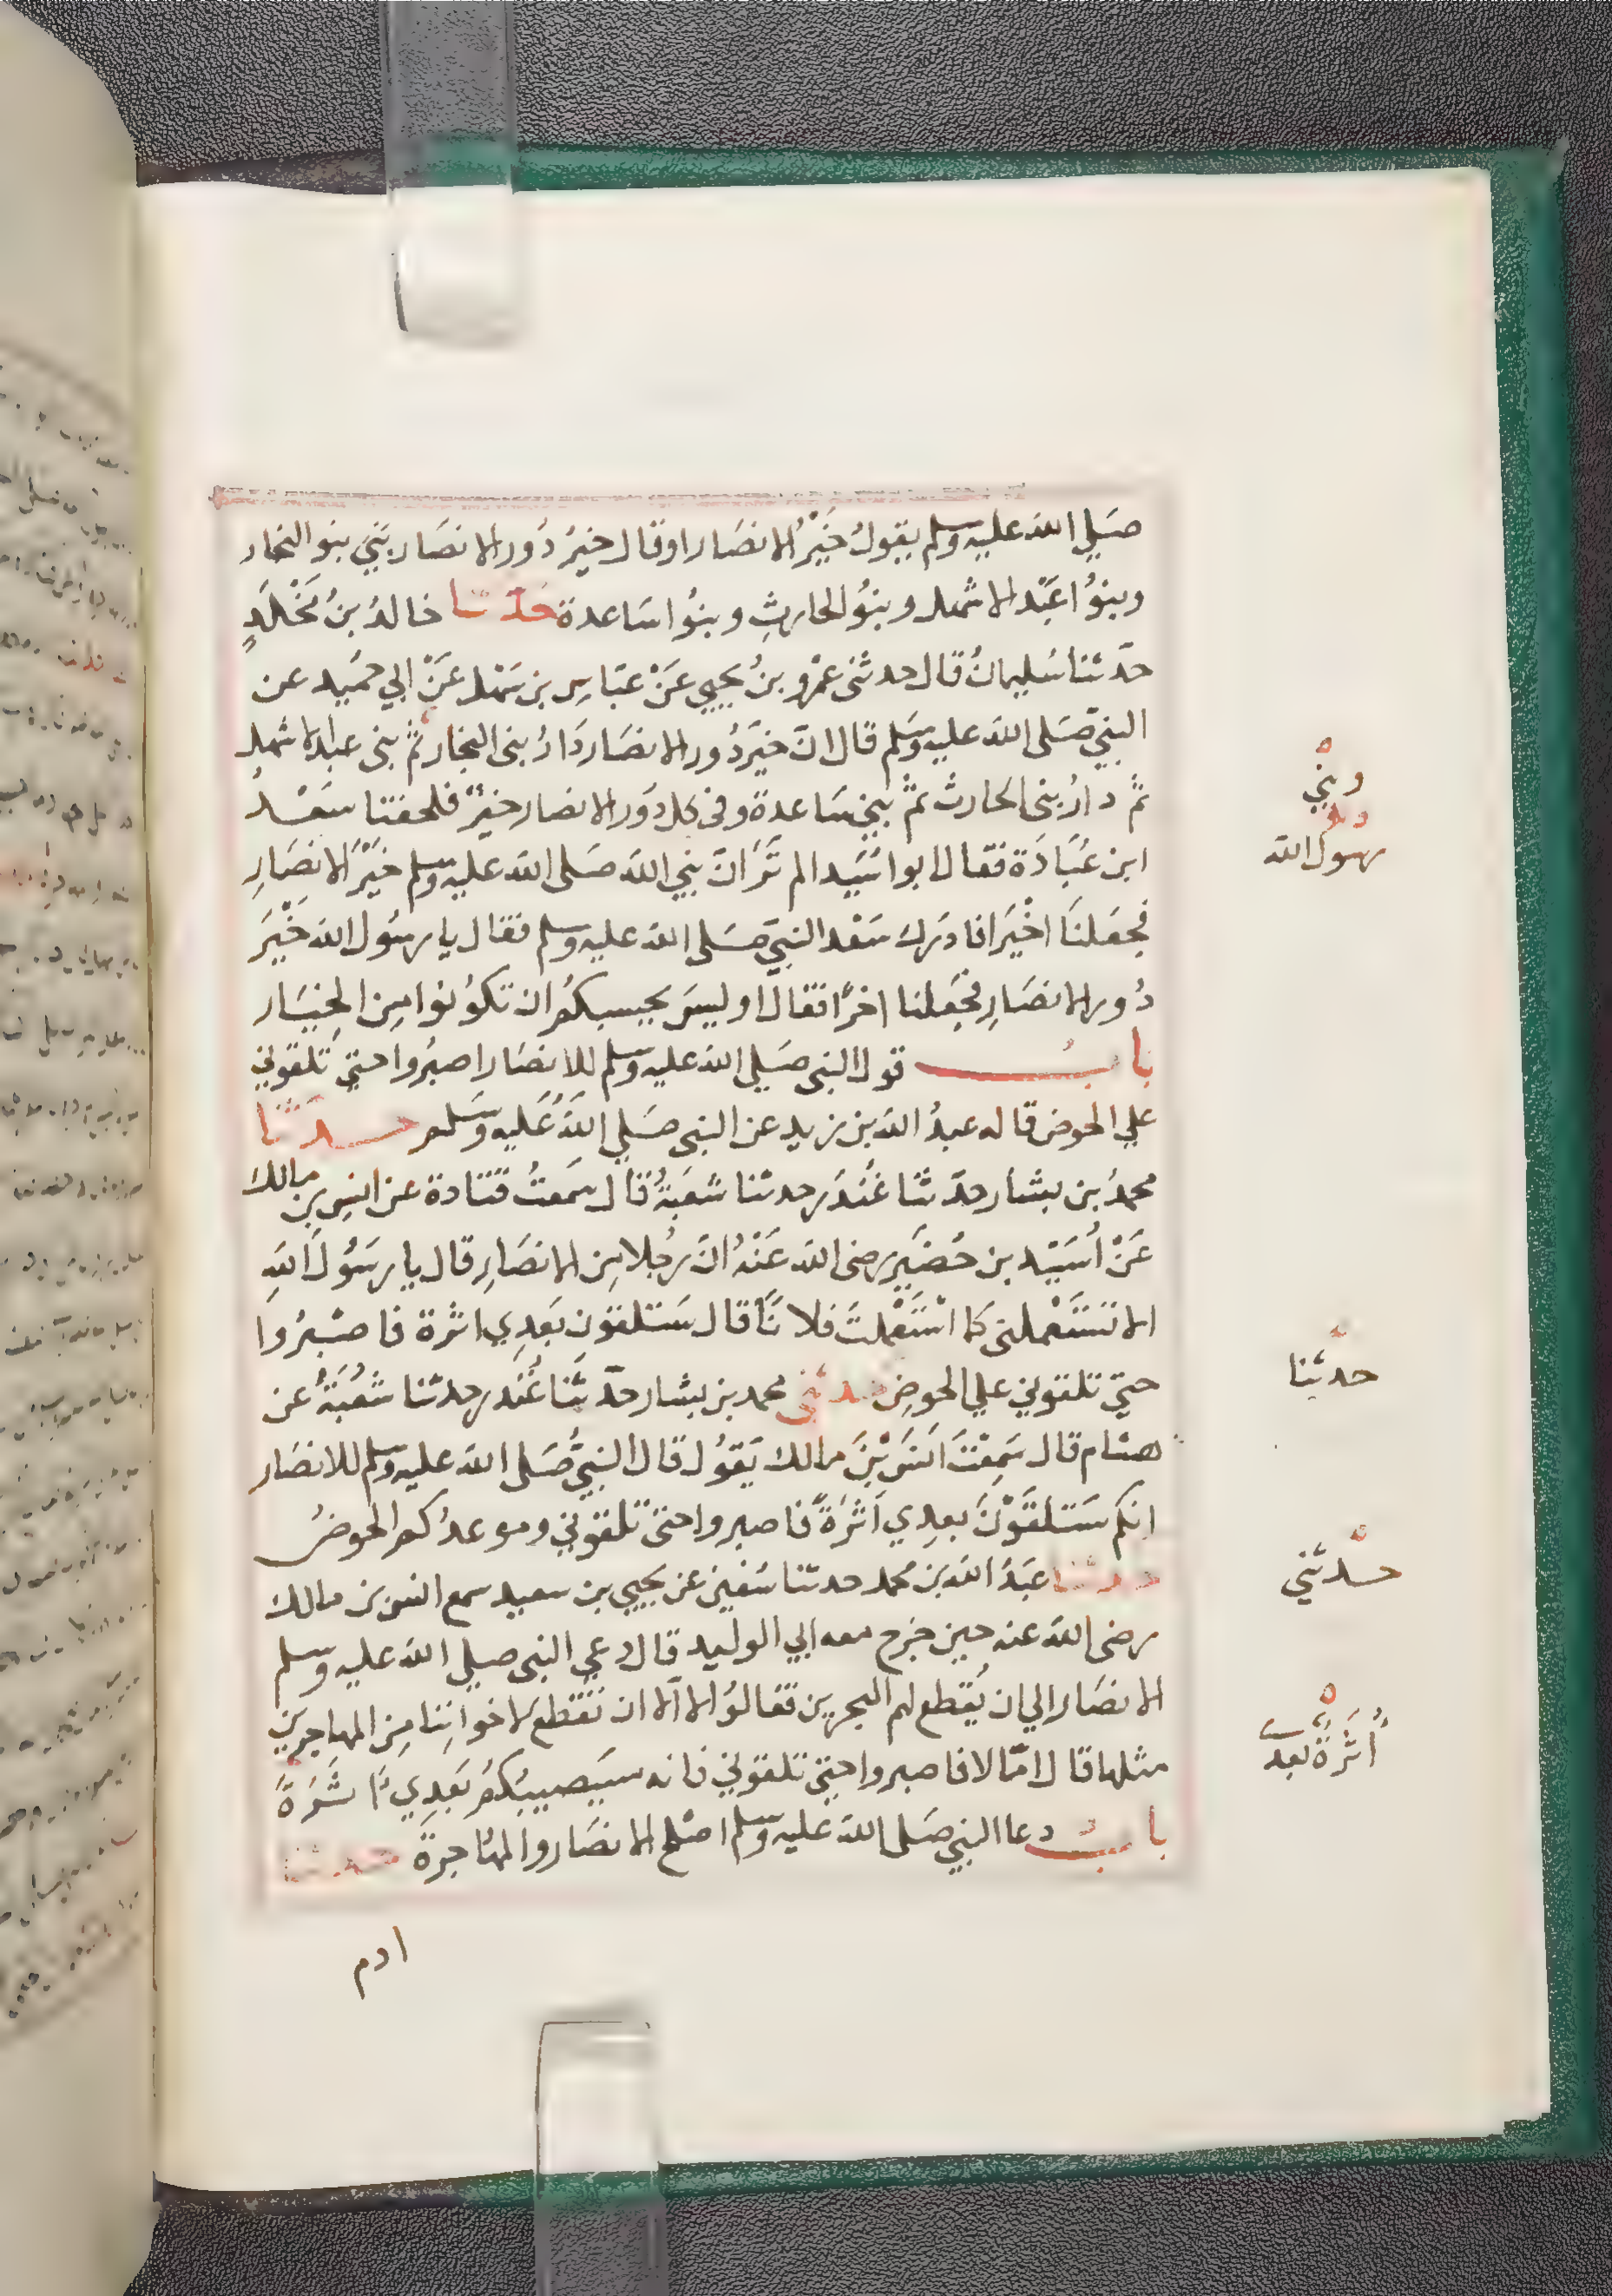 صَلي الله عليه وسلم يقولُ خَيْرُ الانصَار او قال خيرُ دُور الانصَار بَنى بنو النجار
وبنوُا عَبْد الاشهل وبنوُ الحارِثِ وبنوُا سَاعدة حَدّثنا خالدُ بنُ مَخْلَدٍ
حدّثنا سُليمانُ قال حدثنى عمْرو بنُ يحيي عَنْ عبَّاسِ بن سَهْل عَنْ ابي حُمَيد عن
النبيّ صَلى الله عليه وسَلم قال انّ خيرَ دُور الانصَار دَارُ بنى النجار ثمّ بنى عبد الاشهل
ثمّ دارُ بنى الحارث ثمّ بني سَاعدة وفى كل دوَر الانصار خيرٌ فلحقنا سَعْدُ
ابن عبَادَة فقال ابو اسَيد الم تَرَ انّ نبي الله صَلى الله عليه وسلم خيَّرَ الانصَارِ
فجعَلنَا اخْيَرا فادرَك سَعْد النبيّ صَلى الله عليه وسلم فقال يا رسُول الله خُيِّرَ
دُور الانصَارِ فجُعِلنا اخرًا فقال او ليسَ بحسبكُم ان تكوُنوا مِن الخِيَار
بابُ قول النبى صَلي الله عليه وسلم للانصَار اصبرُوا حتي تَلقوني
علي الحوض قاله عبدُ الله بن زيد عن النبى صَلي اللهُ عَليه وسَلم حدَّثنا
محمدُ بن بشار حدّثنا غُندَر حدثنا شعَبَةُ قال سَمعتُ قَتَادة عن انسِ بن مالك
عَنْ اُسَيْد بن حُضَيرٍ رضى الله عَنْهُ انَّ رجُلا مِن الانصَارِ قال يا رسَوُلَ اللهِ
الا تسْتَعْملنى كما اسْتَعْملتَ فلاناً قال سَتلقون بَعدِي اثرة فاصْبرُوا
حتي تلقوني علي الحوضِ حدثنى محمد بن بشار حدّثنَا غُنْدر حدثنا شعُبَةُ عن
هشام قال سَمِعْتَ انَسَ بْنَ مالك يَقوُل قال النبيُّ صَلى الله عليه وسلم للانصَار
انكم سَتَلقَوْنَ بعدِي اَثرَةً فاصبروا حتى تلقوني وموعدُكم الحوضُ
حدثنا عبَدُ الله بن محمد حدثنا سُفين عن يحيي بن سعيد سمع انس بن مالك
رضى الله عنه حين خرج معه ابي الوليد قال دعي النبى صلي الله عليه وسلم
الانصَار الي ان يُقطع لهم البحرين فقالوُا لا الا ان تُقطع لاخوانِنا مِن المهاجرين
مثلها قال امّا لا فاصبروا حتى تلقوني فانه سيَصيبُكمُ بَعدِي اَثَرَةً
بابُ دعا النبي صَلى الله عليه وسلم اصْلح الانصَار والمهُاجرةَ حدثنا
ادم
وبني
رسول الله
حدثنا
حدثني
أُثَرَةً بعد